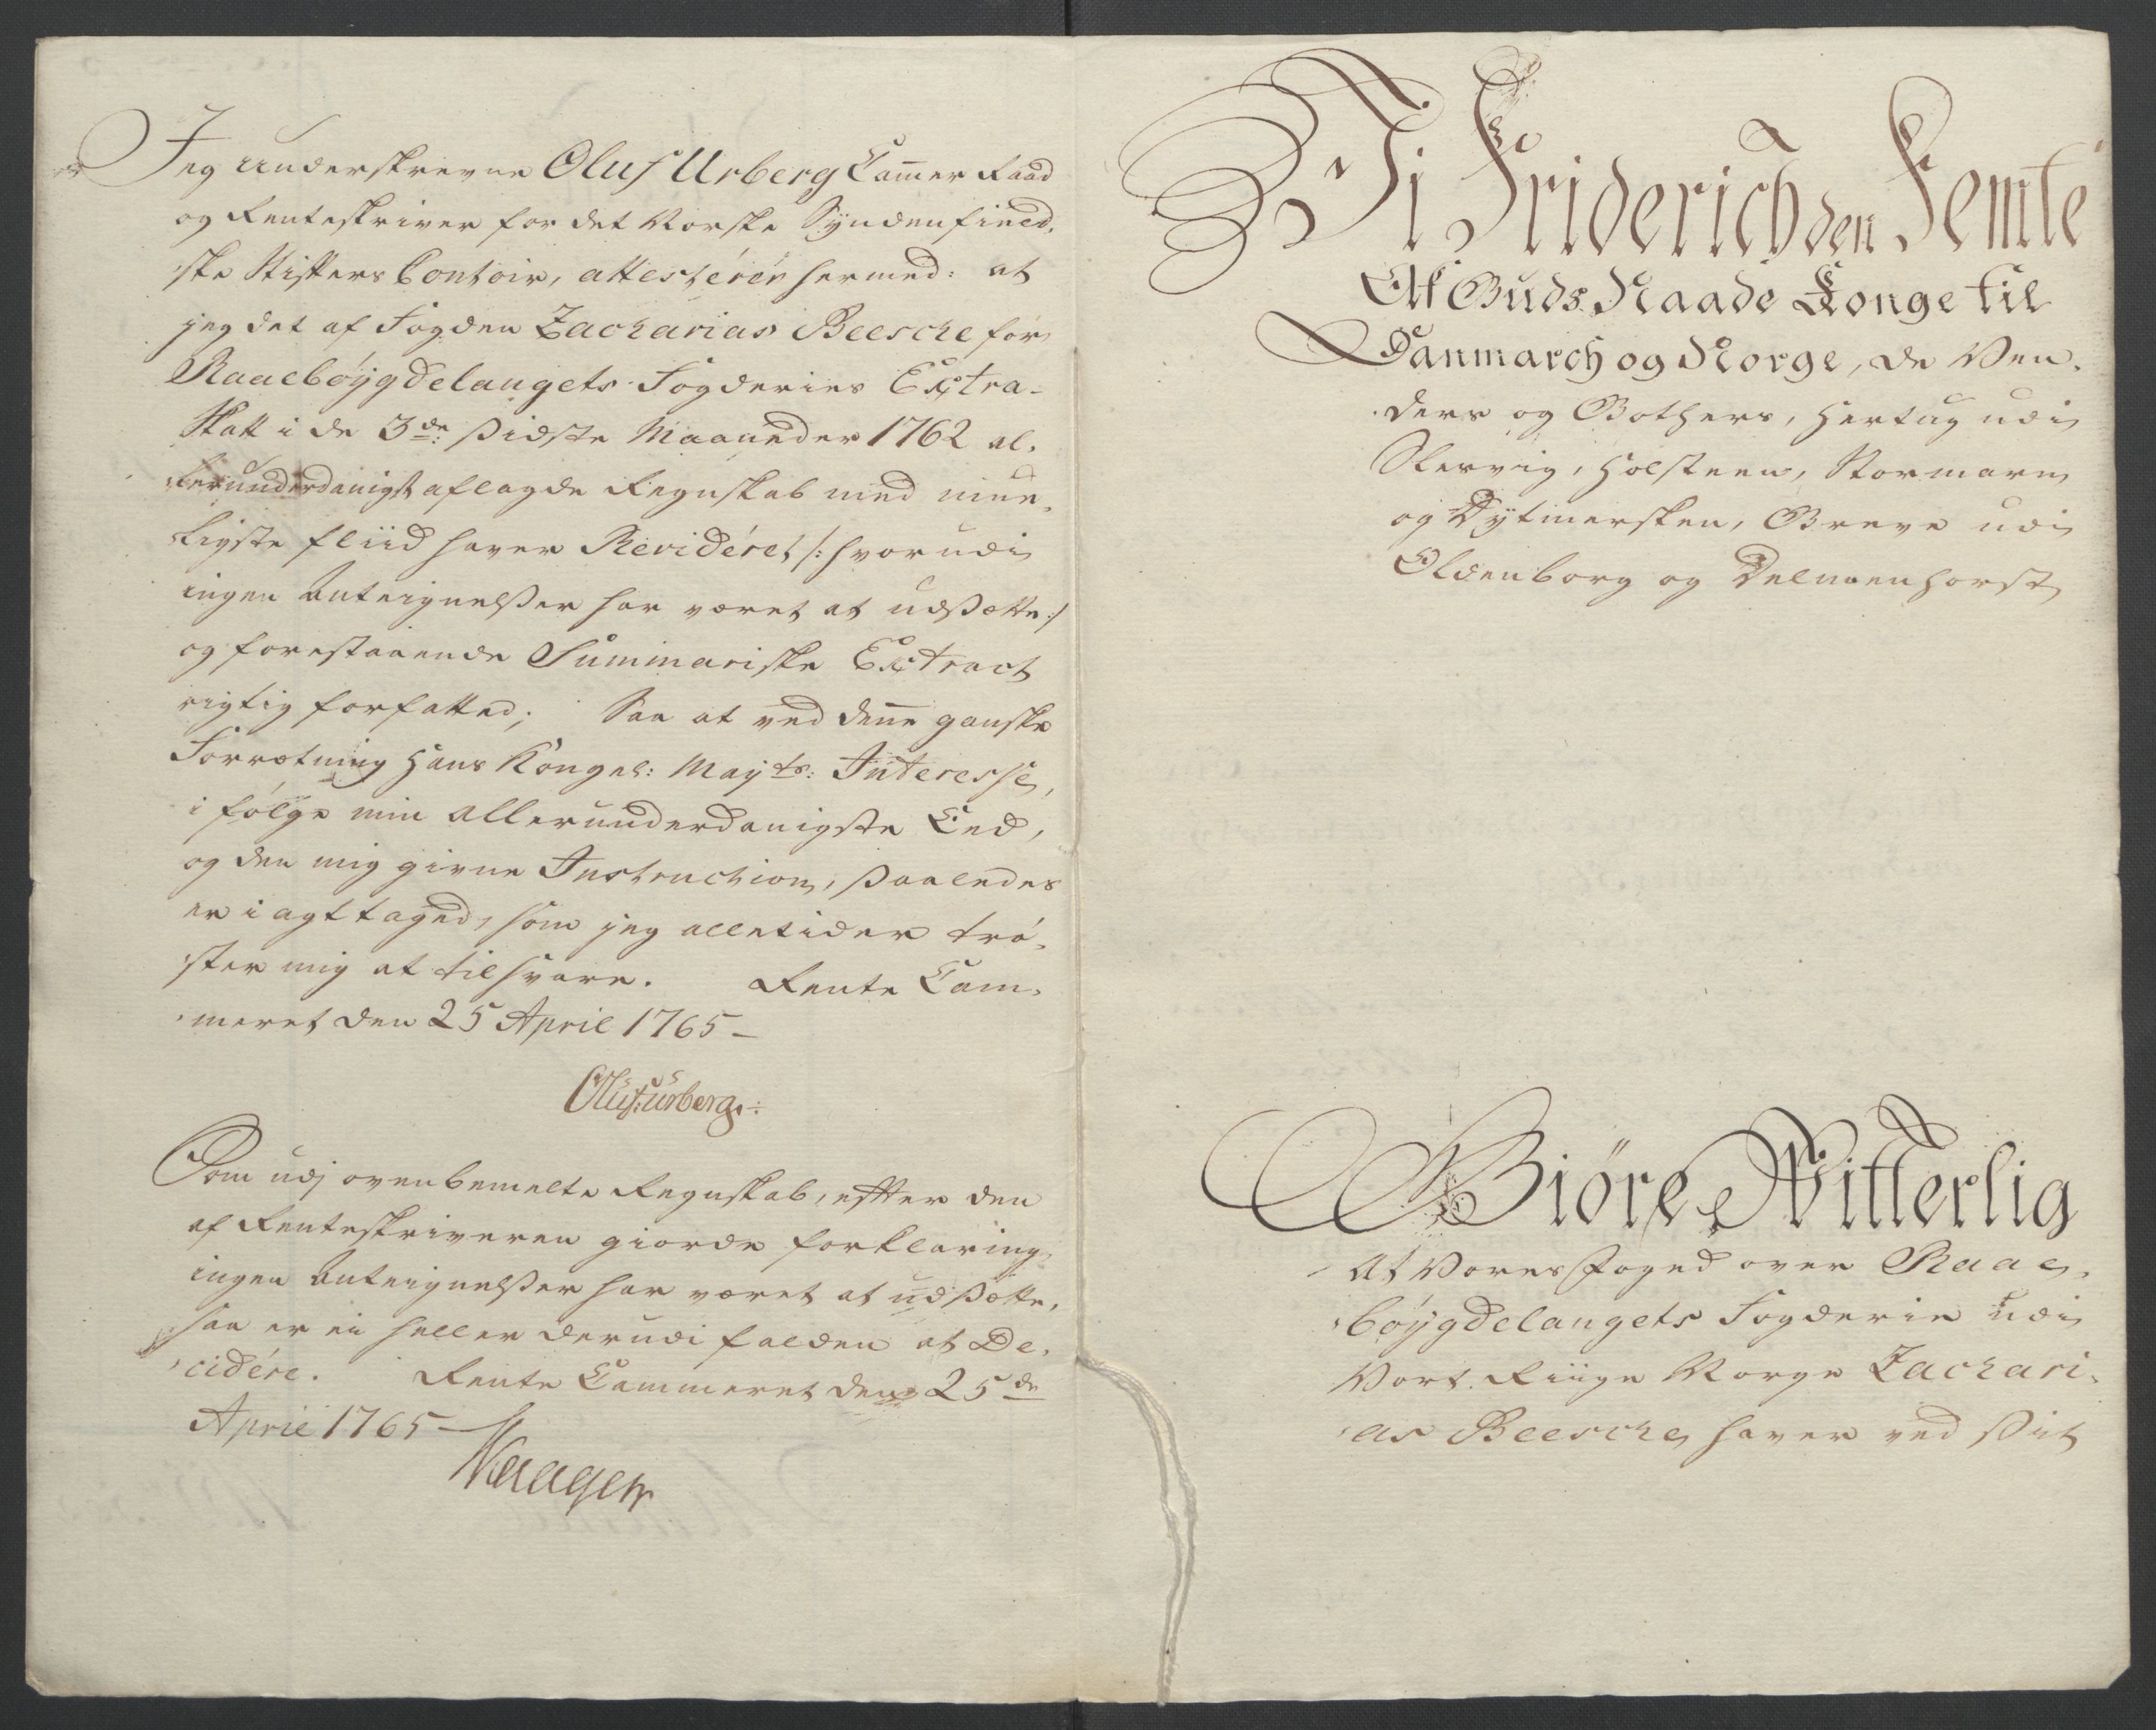 Jeg underskrevne Oluf Urberg Cam̅er Raad
og Renteskriver for det Norske Syndenfield,
ske Stifters Contoir, attesterer hermed: at
jeg det af Fogden Zacharias Beesche for
Raaebøÿgdelaugets Fogderies Extra-
Skatt i de 3de: sidste Maaneder 1762 al,
lerunderdanigst aflagde Regnskab med mue,
ligste fliid haver Revideret /: hvorudi
ingen Anteignelser har været at udsætte :/
og forestaaende Summariske Extract
rigtig forfatted; Saa at ved den̅e ganske
Forretning Hans Kongel: Mayts: Interesse,
i følge min allerunderdanigste Eed,
og den mig givne Instruction, saaledes
er i agt taged, som jeg alletider trø,
ster mig at tilsvare. Rente Cam,
meret den 25 April 1765 –
Oluf Urberg
Som udj ovenbemelte Regnskab, efter den
af Renteskriveren giorde forklaring,
ingen Anteignelser har været at udsætte,
saa er ei heller derudi falden at De,
cidére. Rente Cammeret den 25de
April 1765 –
Waagen
Vi Friderich den Femte
Af Guds Naade Konge til
Danmarch og Norge, de Ven,
ders og Gothers, Hertug udi
Slesvig, Holsteen, Stormarn
og Dytmersken, Greve udi
Oldenborg og Delmenhorst
Giöre Vitterlig
At Vores Foged over Raae,
bøÿgdelaugets Fogderie udi
Vort Riige Norge Zachari,
as Beesche haver ved sit